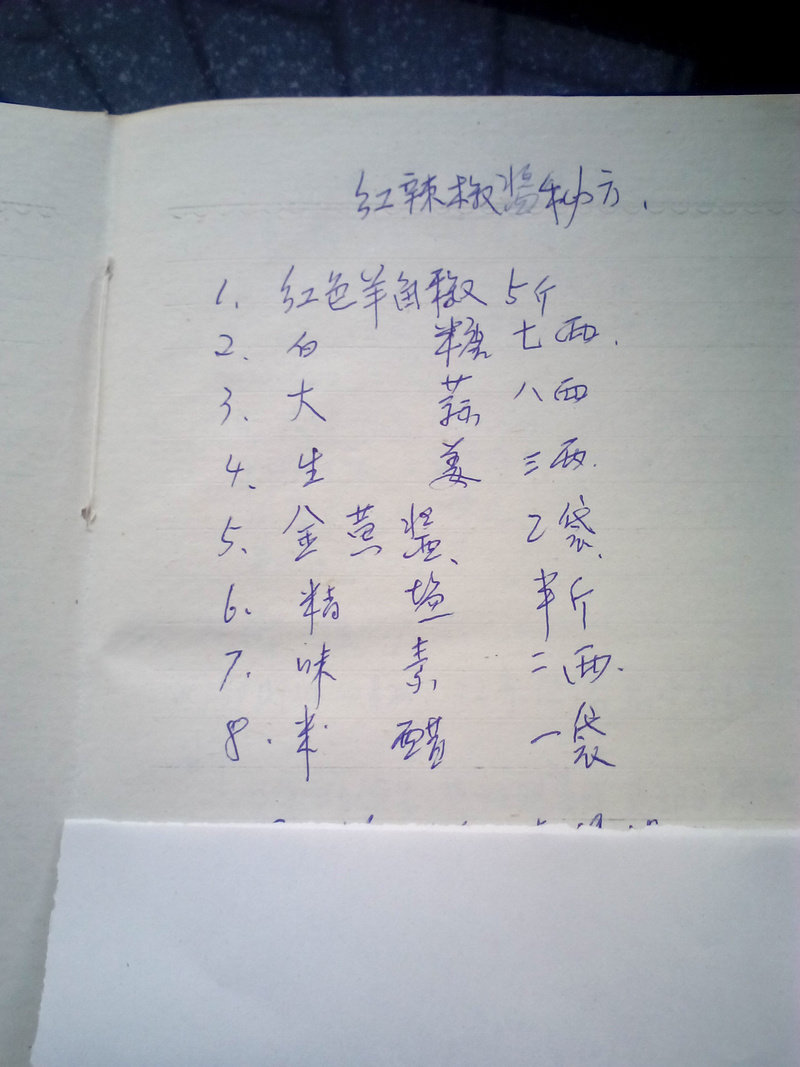 红辣椒酱秘方.
1、红色羊角椒 5斤
2、白糖 七两.
3、大蒜 八两
4、生姜 三两.
5、金黄酱、 2袋.
6、精盐 半斤
7、味素 二两.
8、米醋 一袋